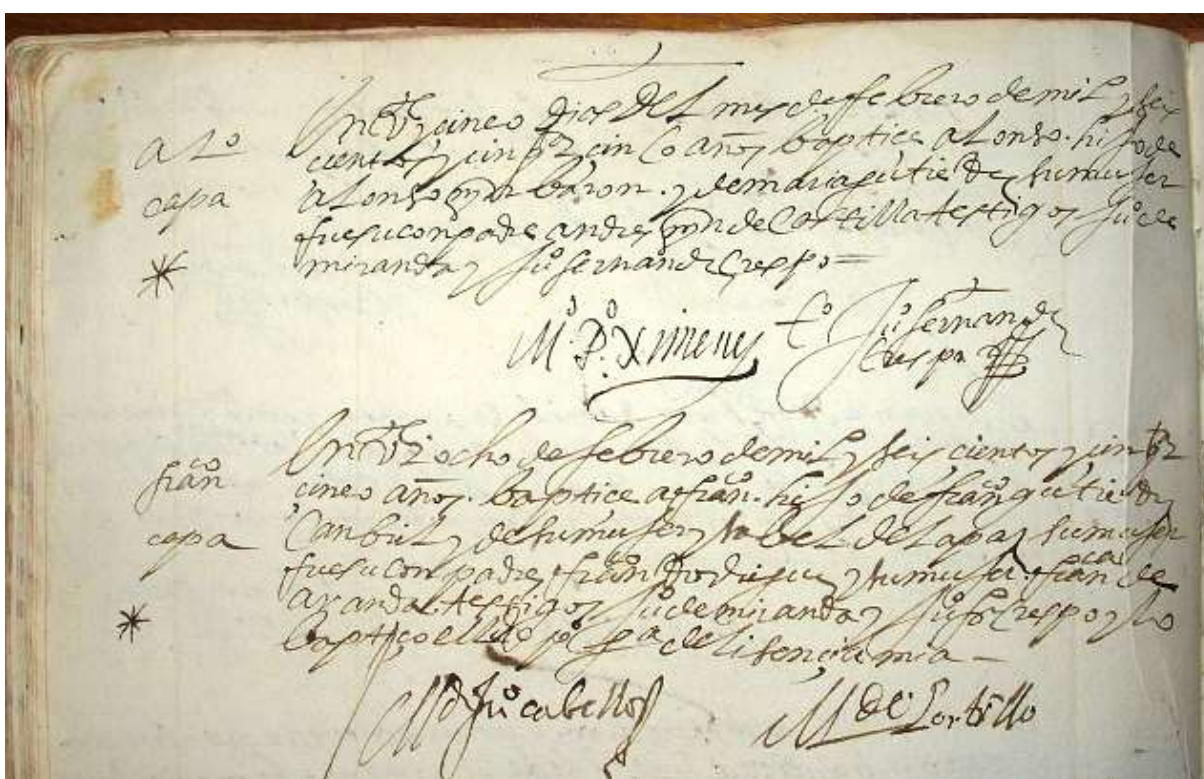 En Vty cinco dias del mes de febrero de mil y seis
cientos y cinq.ta cinco años baptice a Lonso. hijo de
aLº
aLonso mrn baron. y de maria gutierrez su muger
capa
fue su conpadre andres mrn de Castilla testigos Juº de
miranda y Juº fernandz Crespo =
Mº Pº Ximenez
tº Juº fernandz
Crespo
En Vty ocho de febrero de mil y seis cientos y cinqta
cinco años. baptice a franco. hijo de franco gutierrez
franco
Canbil y de su muger ysabel de La paz su muger
capa
fue su conpadre franco Rodriguez y su muger franca de
aranda. testigos Juº de miranda y Juº fr Crespo y lo
baptiço el Ldo de lisencia mia —
Juº cabellos
Mº del Portillo